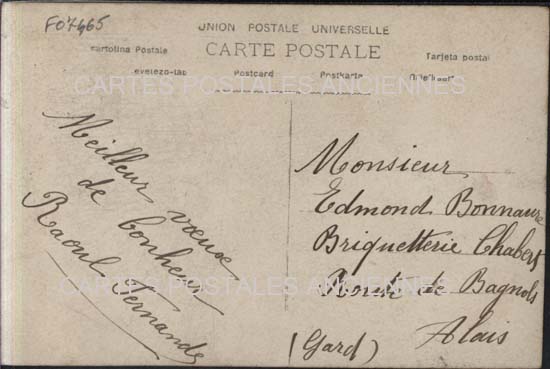 F07465
UNION POSTALE UNIVERSELLE
CARTE POSTALE
Cartolina Postale
Tarjeta postal
Levelezo-lap
Postcard
Postkarte
CARTES POSTALES ANCIENNES
Meilleur voeux
de bonheur
Raoul Fernande
Monsieur
Edmond Bonnaure
Briquetterie Chabert
Route de Bagnols
Alais
(Gard)
CARTES POSTALES ANCIENNES